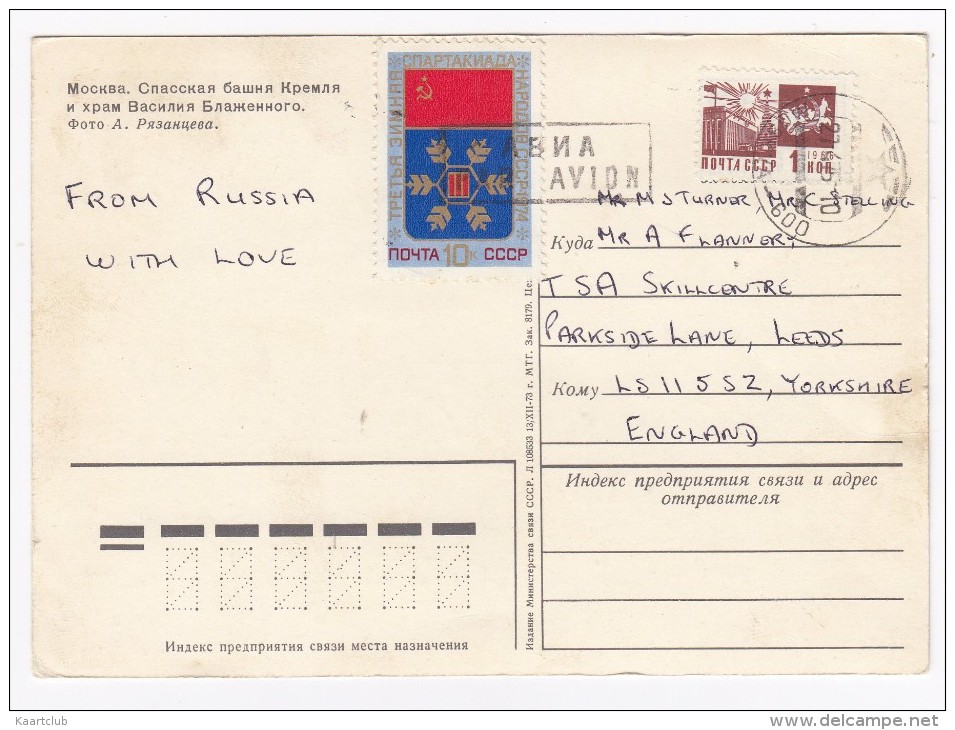 Москва. Спасская башня Кремля
и храм Василия Блаженного.
Фото А. Рязанцева.
FROM RUSSIA
WITH LOVE
ТРЕТЬЯ ЗИМНЯЯ
СПАРТАКИАДА
НАРОДОВ СССР 1974
III
ПОЧТА 10к СССР
АВИА
AVION
ПОЧТА СССР 1 КОП.
1966
MR M J TURNER / MR C STELLING
Куда MR A FLANNERY
TSA SKILLCENTRE
PARKSIDE LANE, LEEDS
Кому LS11 5SZ, YORKSHIRE
ENGLAND
Индекс предприятия связи и адрес
отправителя
Издание Министерства связи СССР. Л 108533 13/XII-73 г. МТГ. Зак. 8179. Це:
Индекс предприятия связи места назначения
Kaartclub
www.delcampe.net